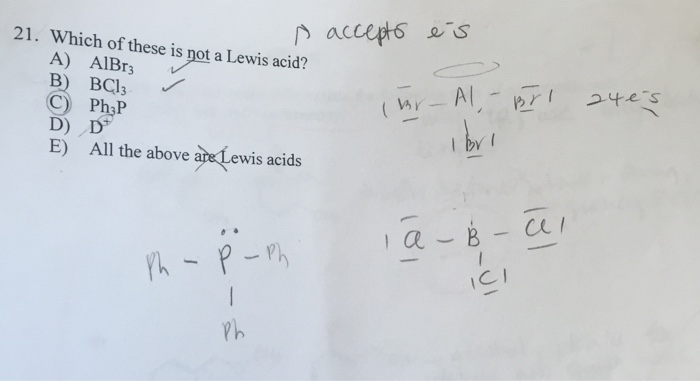 21. Which of these is not a Lewis acid?
A) AlBr3
B) BCl3
C) Ph3P
D) D+
E) All the above are Lewis acids
accepts e-s
Br - Al - Br 24e-s
Br
Cl - B - Cl
Cl
Ph - P - Ph
Ph